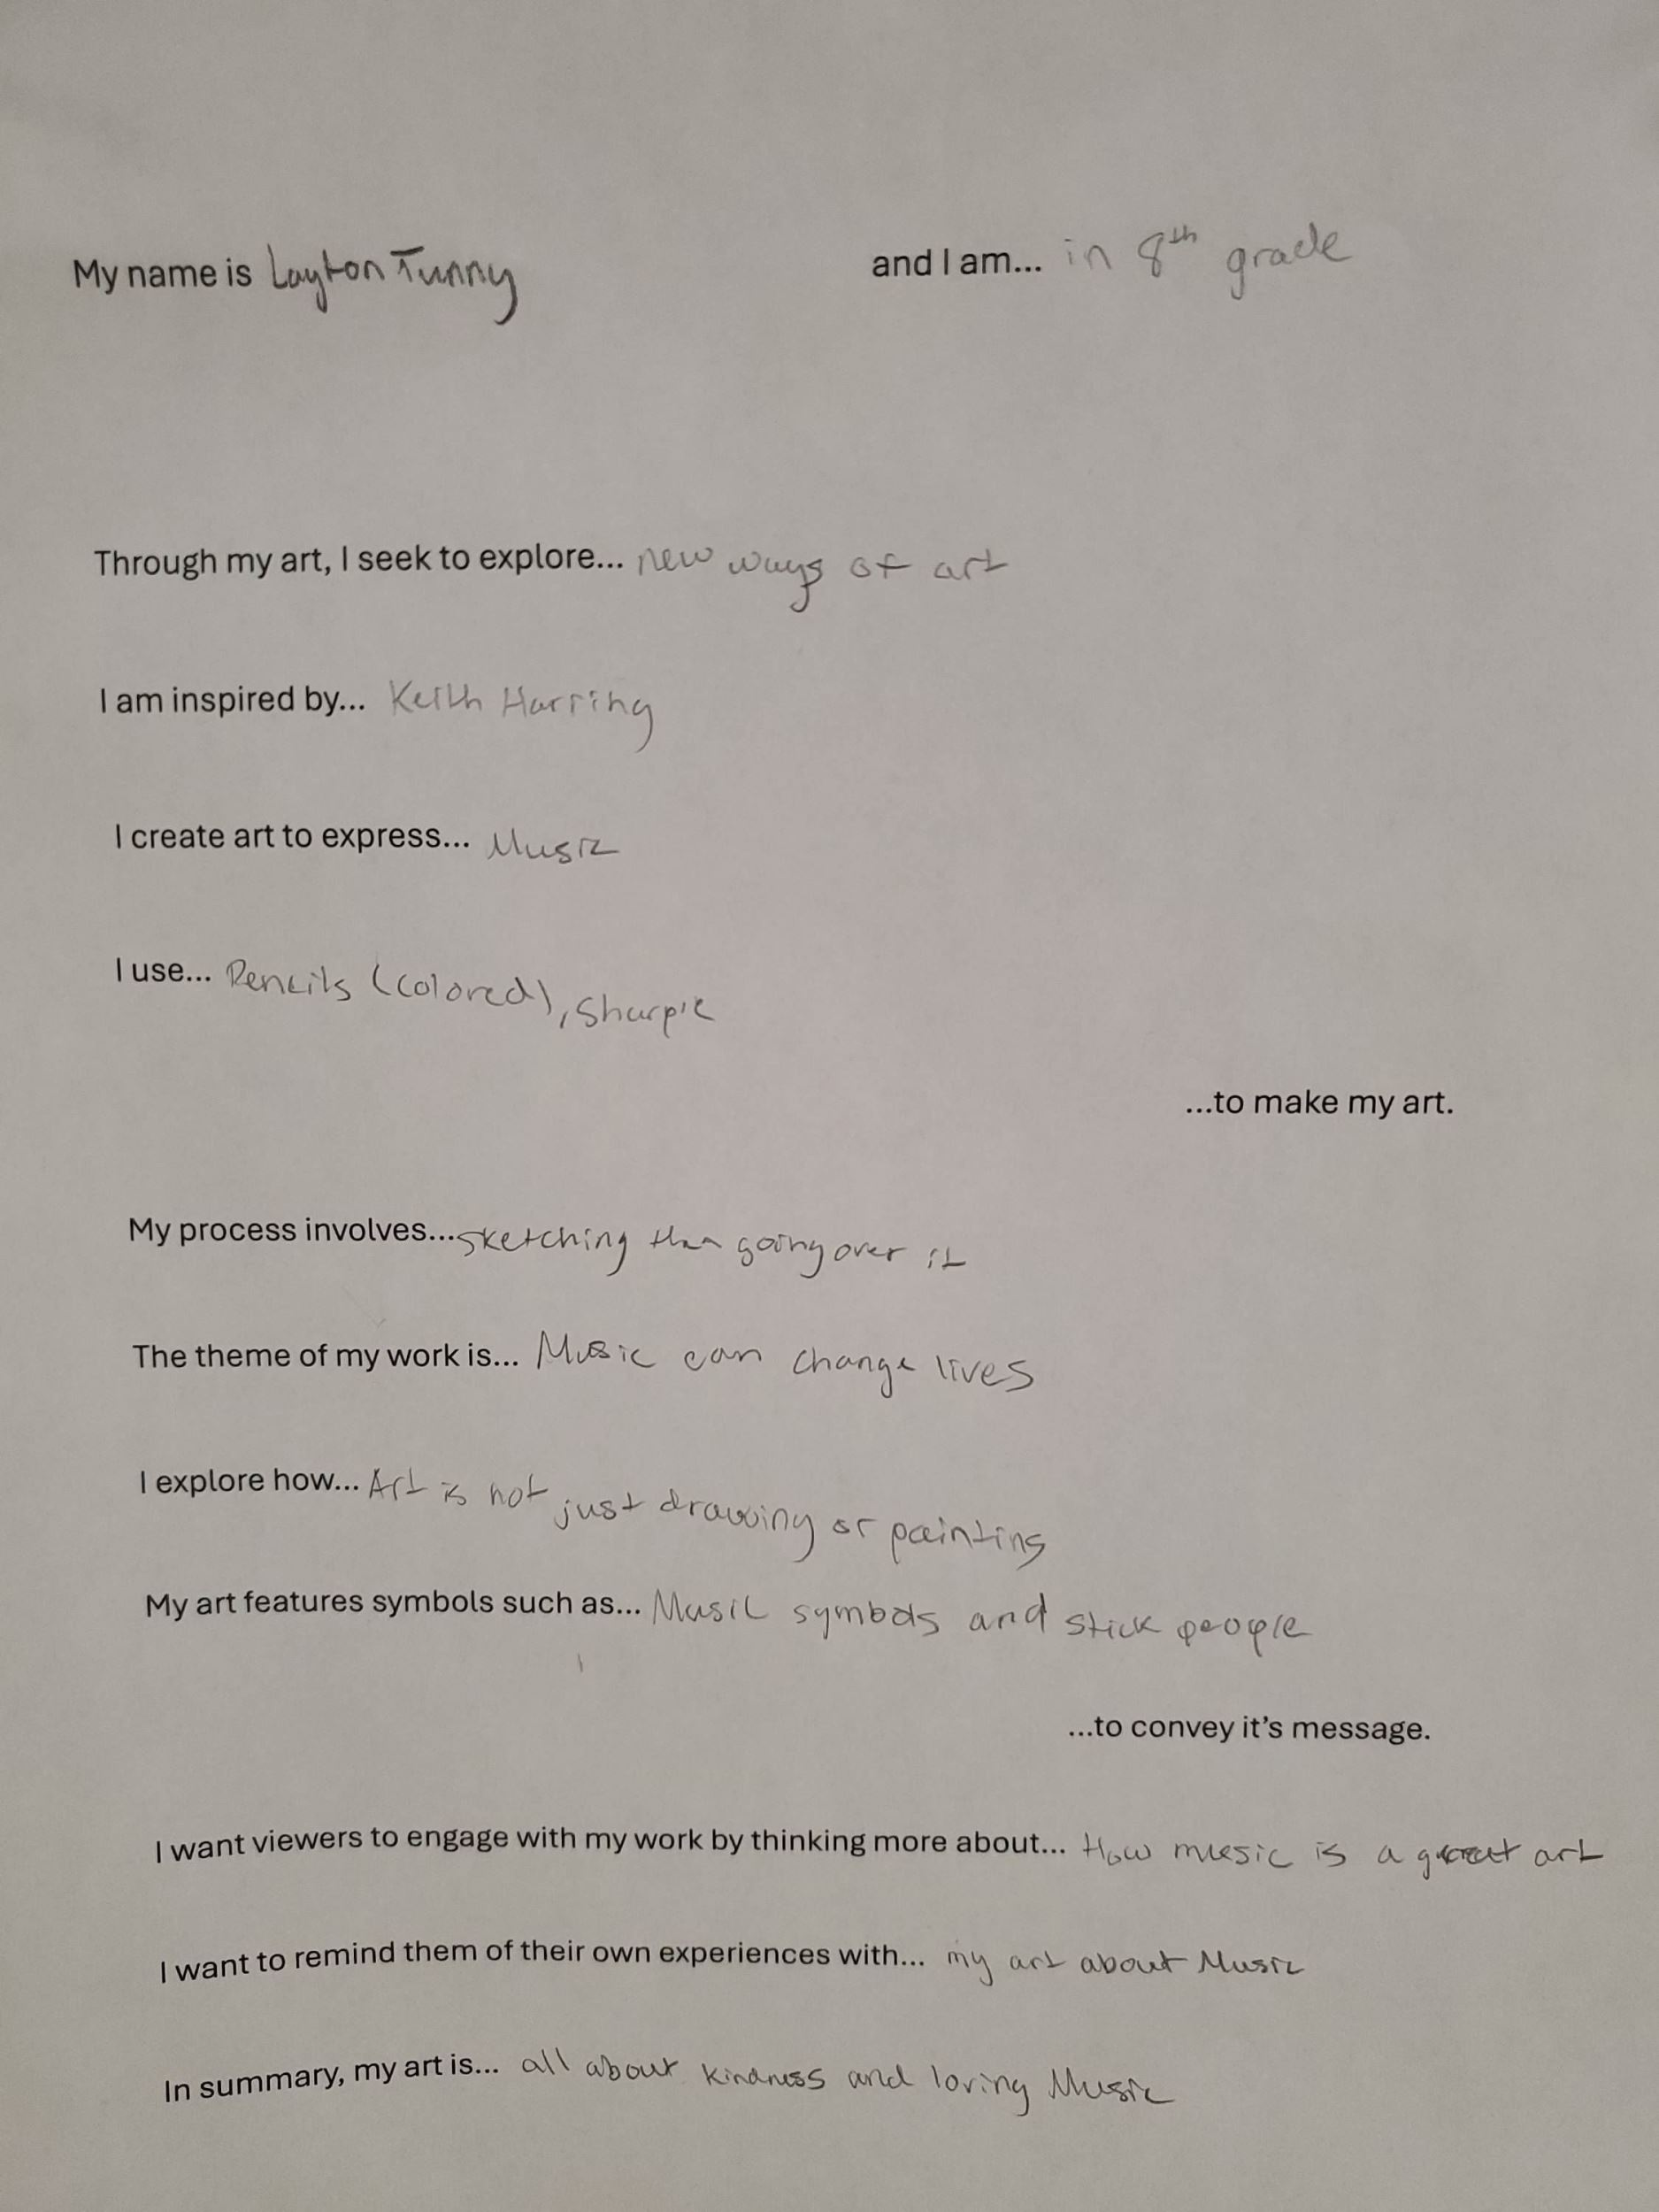 My name is Layton Tunny and I am... in 8th grade
Through my art, I seek to explore... new ways of art
I am inspired by... Keith Harring
I create art to express... Music
I use... Pencils (colored), Sharpie
...to make my art.
My process involves... sketching then going over it
The theme of my work is... Music can change lives
I explore how... Art is not just drawing or painting
My art features symbols such as... Music symbols and stick people
...to convey it's message.
I want viewers to engage with my work by thinking more about... How music is a great art
I want to remind them of their own experiences with... my art about Music
In summary, my art is... all about kindness and loving Music